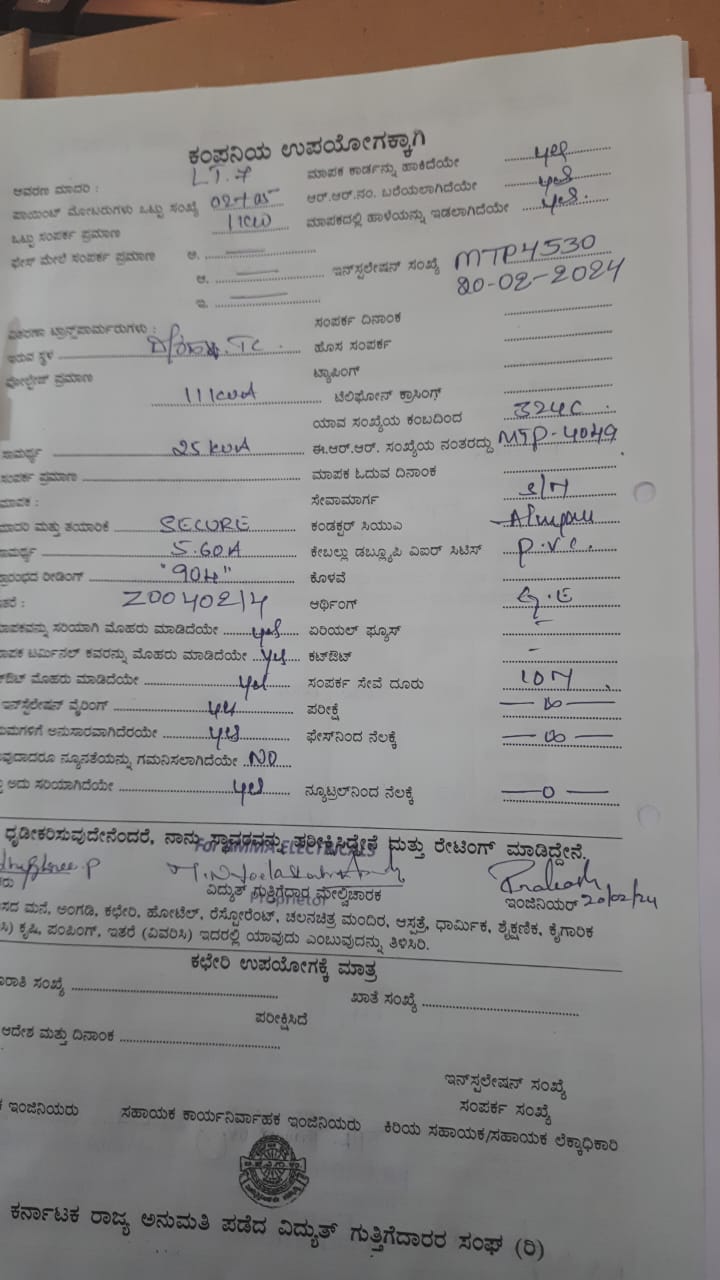 ಕಂಪನಿಯ ಉಪಯೋಗಕ್ಕಾಗಿ
ಆವರಣ ಮಾದರಿ : LT.7 ಮಾಪಕ ಕಾರ್ಡನ್ನು ಹಾಕಿದೆಯೇ yes
ಪಾಯಿಂಟ್ ಮೋಟರುಗಳು ಒಟ್ಟು ಸಂಖ್ಯೆ 02+05 ಆರ್.ಆರ್.ನಂ. ಬರೆಯಲಾಗಿದೆಯೇ yes
ಒಟ್ಟು ಸಂಪರ್ಕ ಪ್ರಮಾಣ ಮಾಪಕದಲ್ಲಿ ಹಾಳೆಯನ್ನು ಇಡಲಾಗಿದೆಯೇ yes.
ಫೇಸ್ ಮೇಲೆ ಸಂಪರ್ಕ ಪ್ರಮಾಣ ಅ.
ಆ. ಇನ್‌ಸ್ಟಲೇಷನ್ ಸಂಖ್ಯೆ MTP4530
ಇ. 20-02-2024
ವಿತರಣಾ ಟ್ರಾನ್ಸ್‌ಫಾರ್ಮರುಗಳು : ಸಂಪರ್ಕ ದಿನಾಂಕ
ಇರುವ ಸ್ಥಳ TC. ಹೊಸ ಸಂಪರ್ಕ
ವೋಲ್ಟೇಜ್ ಪ್ರಮಾಣ ಟ್ಯಾಪಿಂಗ್
11KVA ಟೆಲಿಫೋನ್ ಕ್ರಾಸಿಂಗ್
ಯಾವ ಸಂಖ್ಯೆಯ ಕಂಬದಿಂದ
ಸಾಮರ್ಥ್ಯ 25 KVA ಈ.ಆರ್.ಆರ್. ಸಂಖ್ಯೆಯ ನಂತರದ್ದು MTP-4049
ಸಂಪರ್ಕ ಪ್ರಮಾಣ ಮಾಪಕ ಓದುವ ದಿನಾಂಕ
ಮಾಪಕ : ಸೇವಾಮಾರ್ಗ
ಮಾದರಿ ಮತ್ತು ತಯಾರಿಕೆ SECURE ಕಂಡಕ್ಟರ್ ಸಿಯುಎ
ಸಾಮರ್ಥ್ಯ 5.60A ಕೇಬಲ್ಲು ಡಬ್ಲ್ಯೂಪಿ ವಿಐರ್ ಸಿಟಿಸ್ P.V.C.
ಪ್ರಾರಂಭದ ರೀಡಿಂಗ್ ಕೊಳವೆ
ಇತರೆ : Z0040214 ಅರ್ಥಿಂಗ್ G.E
ಮಾಪಕವನ್ನು ಸರಿಯಾಗಿ ಮೊಹರು ಮಾಡಿದೆಯೇ yes ಏರಿಯಲ್ ಫ್ಯೂಸ್ -
ಮಾಪಕ ಟರ್ಮಿನಲ್ ಕವರನ್ನು ಮೊಹರು ಮಾಡಿದೆಯೇ yes ಕಟ್‌ಔಟ್ -
ಕಟ್‌ಔಟ್ ಮೊಹರು ಮಾಡಿದೆಯೇ yes ಸಂಪರ್ಕ ಸೇವೆ ದೂರು 10M
ಇನ್‌ಸ್ಟಲೇಷನ್ ವೈರಿಂಗ್ yes ಪರೀಕ್ಷೆ — ∞ —
ನಿಯಮಗಳಿಗೆ ಅನುಸಾರವಾಗಿದೆರಯೇ yes ಫೇಸ್‌ನಿಂದ ನೆಲಕ್ಕೆ — ∞ —
ಯಾವುದಾದರೂ ನ್ಯೂನತೆಯನ್ನು ಗಮನಿಸಲಾಗಿದೆಯೇ NO
ಅದು ಸರಿಯಾಗಿದೆಯೇ yes ನ್ಯೂಟ್ರಲ್‌ನಿಂದ ನೆಲಕ್ಕೆ — 0 —
ಧೃಡೀಕರಿಸುವುದೇನೆಂದರೆ, ನಾನು ಸ್ಥಾವರವನ್ನು ಪರೀಕ್ಷಿಸಿದ್ದೇನೆ ಮತ್ತು ರೇಟಿಂಗ್ ಮಾಡಿದ್ದೇನೆ.
For ELECTRICALS
ವಿದ್ಯುತ್ ಗುತ್ತಿಗೆದಾರ ಮೇಲ್ವಿಚಾರಕ ಇಂಜಿನಿಯರ್ 20/02/24
Proprietor
ವಾಸದ ಮನೆ, ಅಂಗಡಿ, ಕಛೇರಿ, ಹೋಟೆಲ್, ರೆಸ್ಟೋರೆಂಟ್, ಚಲನಚಿತ್ರ ಮಂದಿರ, ಆಸ್ಪತ್ರೆ, ಧಾರ್ಮಿಕ, ಶೈಕ್ಷಣಿಕ, ಕೈಗಾರಿಕ
ಕೃಷಿ, ಪಂಪಿಂಗ್, ಇತರೆ (ವಿವರಿಸಿ) ಇದರಲ್ಲಿ ಯಾವುದು ಎಂಬುವುದನ್ನು ತಿಳಿಸಿರಿ.
ಕಛೇರಿ ಉಪಯೋಗಕ್ಕೆ ಮಾತ್ರ
ಸಂಖ್ಯೆ ಖಾತೆ ಸಂಖ್ಯೆ
ಪರೀಕ್ಷಿಸಿದೆ
ಆದೇಶ ಮತ್ತು ದಿನಾಂಕ
ಇನ್‌ಸ್ಟಲೇಷನ್ ಸಂಖ್ಯೆ
ಸಂಪರ್ಕ ಸಂಖ್ಯೆ
ಇಂಜಿನಿಯರು ಸಹಾಯಕ ಕಾರ್ಯನಿರ್ವಾಹಕ ಇಂಜಿನಿಯರು ಕಿರಿಯ ಸಹಾಯಕ/ಸಹಾಯಕ ಲೆಕ್ಕಾಧಿಕಾರಿ
ಕರ್ನಾಟಕ ರಾಜ್ಯ ಅನುಮತಿ ಪಡೆದ ವಿದ್ಯುತ್ ಗುತ್ತಿಗೆದಾರರ ಸಂಘ (ರಿ)